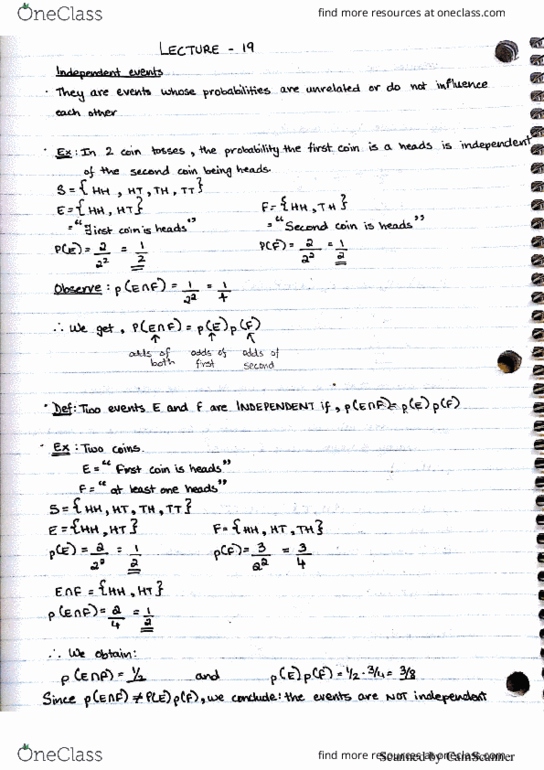 OneClass
find more resources at oneclass.com
LECTURE - 19
Independent events
· They are events whose probabilities are unrelated or do not influence
each other
· Ex: In 2 coin tosses, the probability the first coin is a heads is independent
of the second coin being heads.
S = { HH , HT , TH , TT }
E = { HH , HT } F = { HH , TH }
= "First coin is heads" = "Second coin is heads"
P(E) = 2/2² = 1/2 P(F) = 2/2² = 1/2
Observe : p(E∩F) = 1/2² = 1/4
∴ We get, P(E∩F) = p(E) p(F)
odds of both odds of first odds of second
· Def: Two events E and F are INDEPENDENT if, p(E∩F) = p(E) p(F)
· Ex : Two coins.
E = "First coin is heads"
F = "at least one heads"
S = { HH, HT, TH, TT }
E = {HH, HT} F = {HH, HT, TH}
p(E) = 2/2² = 1/2 p(F) = 3/2² = 3/4
E∩F = {HH, HT}
p(E∩F) = 2/4 = 1/2
∴ We obtain:
p(E∩F) = 1/2 and p(E)p(F) = 1/2 · 3/4 = 3/8
Since p(E∩F) ≠ P(E)p(F), we conclude: the events are NOT independent
OneClass
find more resources at oneclass.com
Scanned by CamScanner